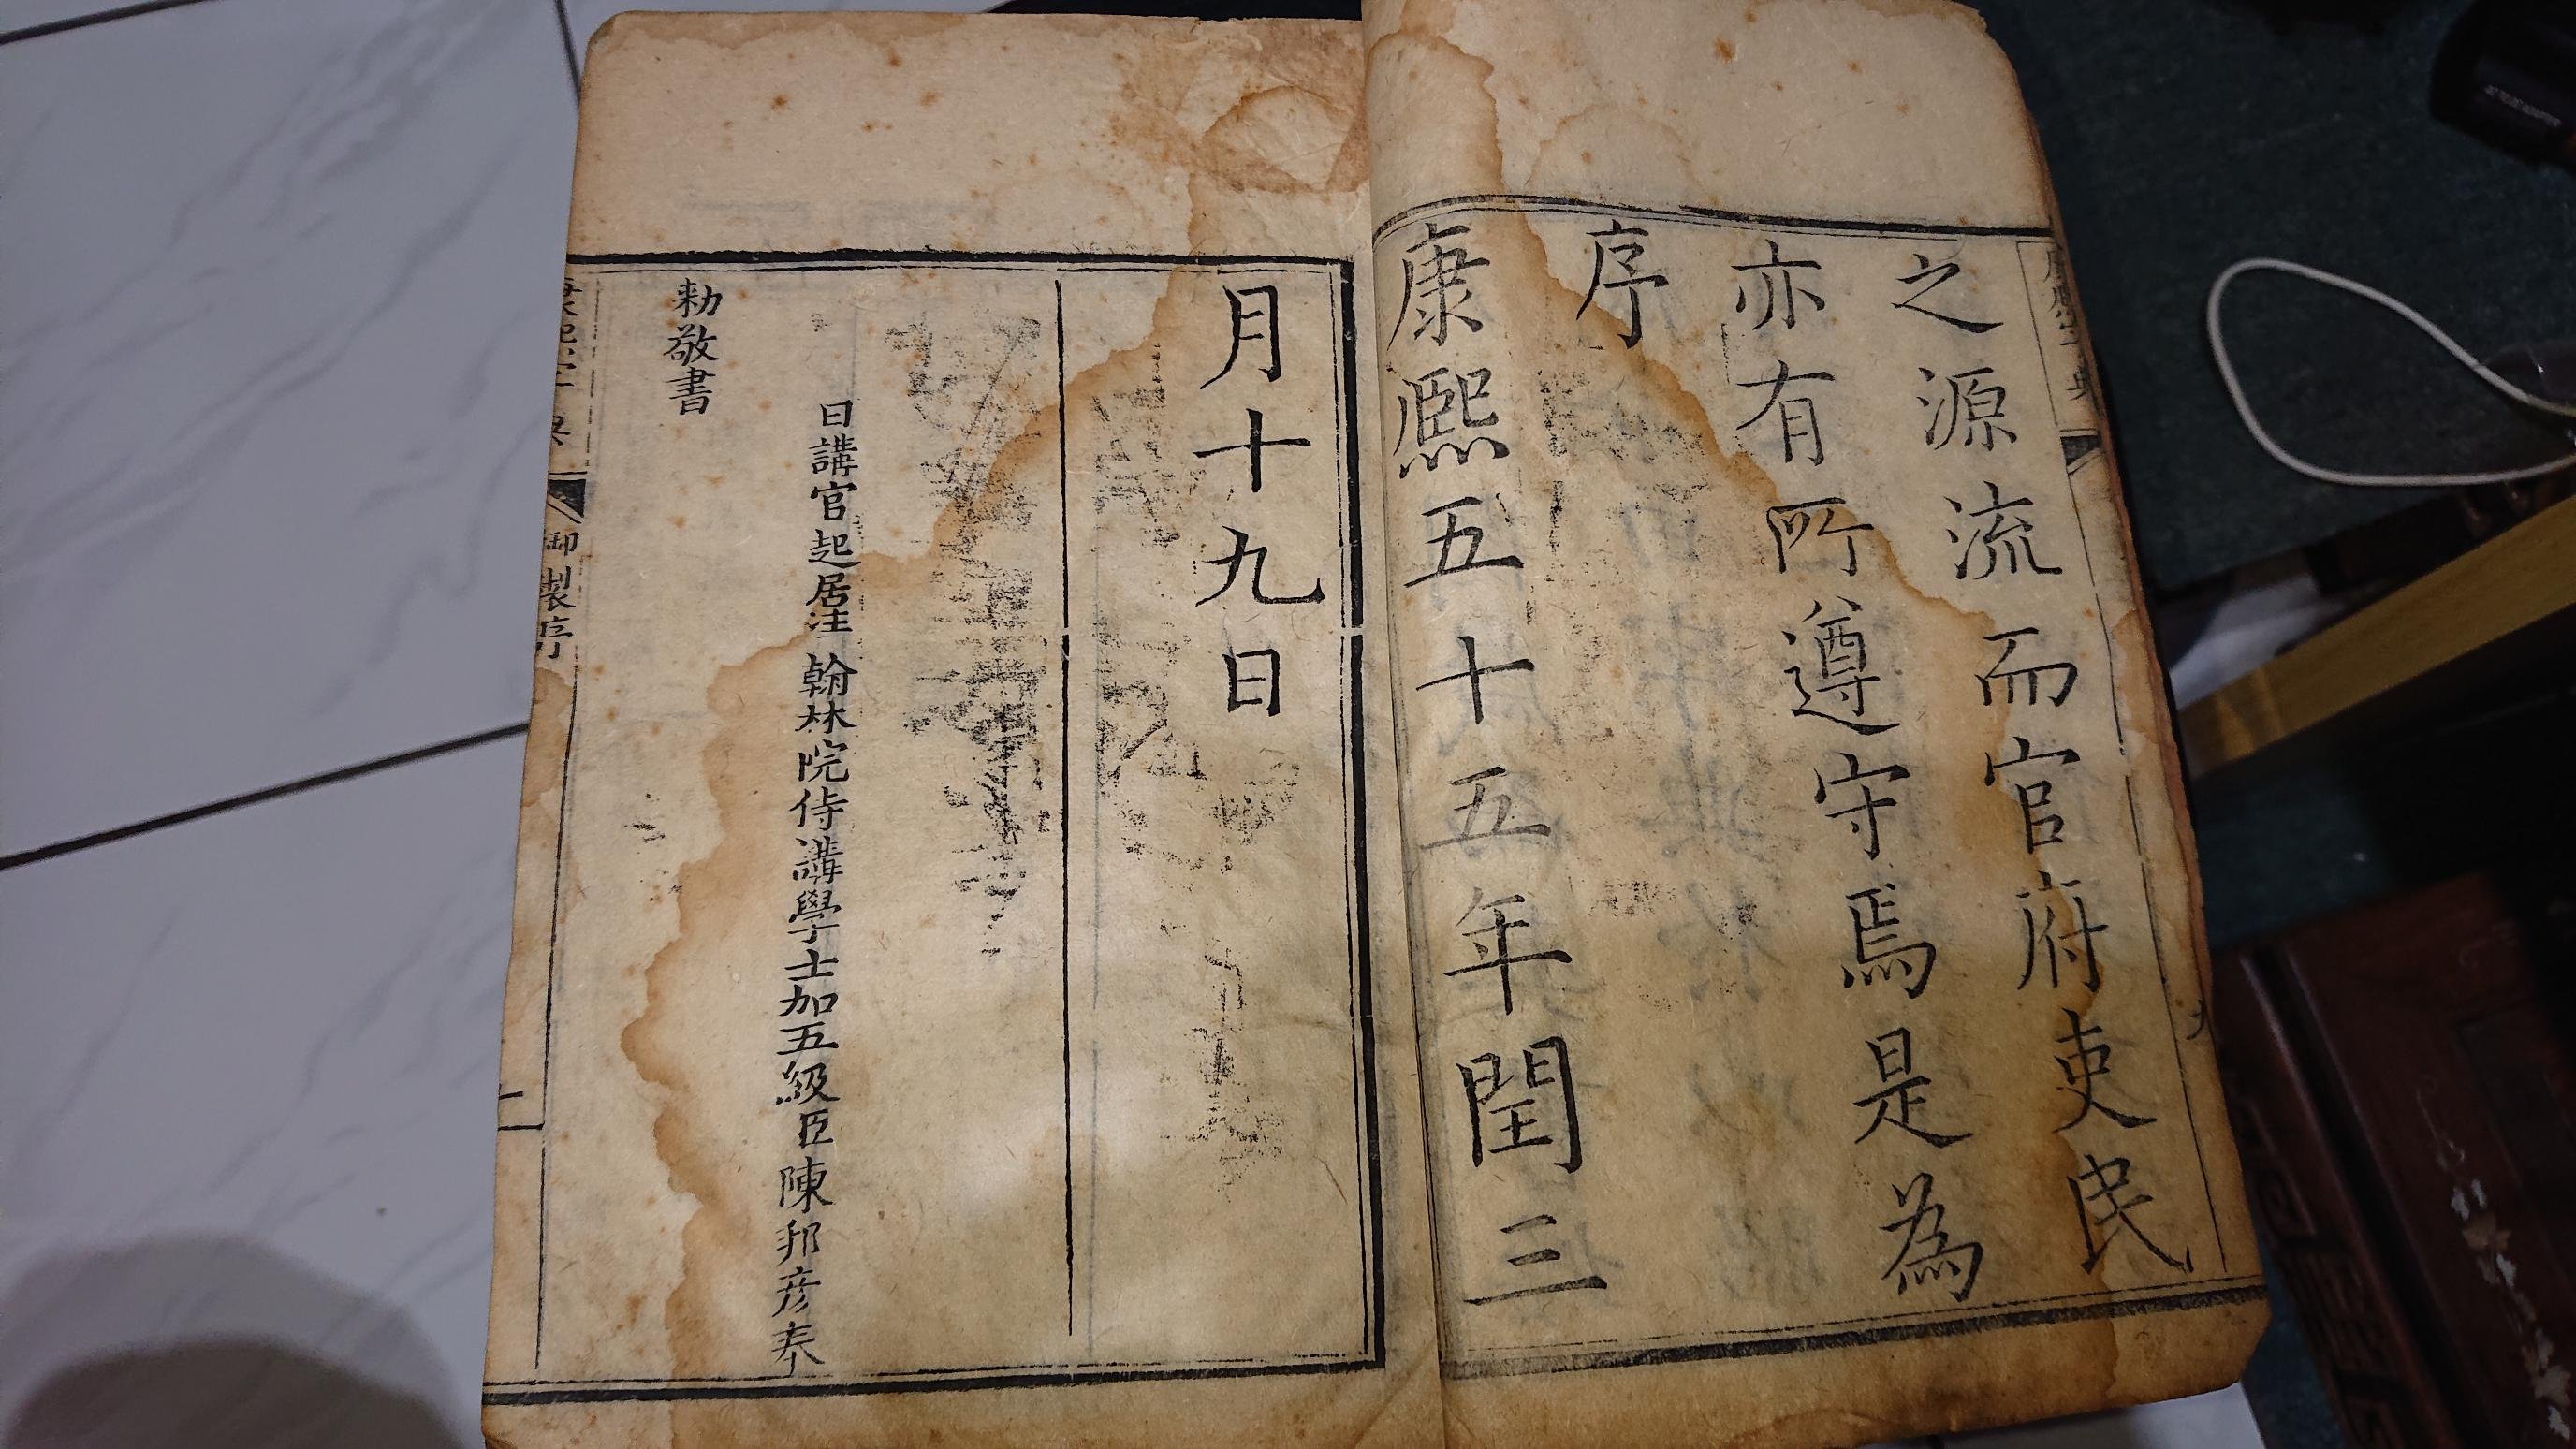 之源流而官府吏民
亦有所遵守焉是為
序
康熙五十五年閏三
月十九日
日講官起居注翰林院侍講學士加五級臣陳邦彦奉
勅敬書
康熙字典
御製序